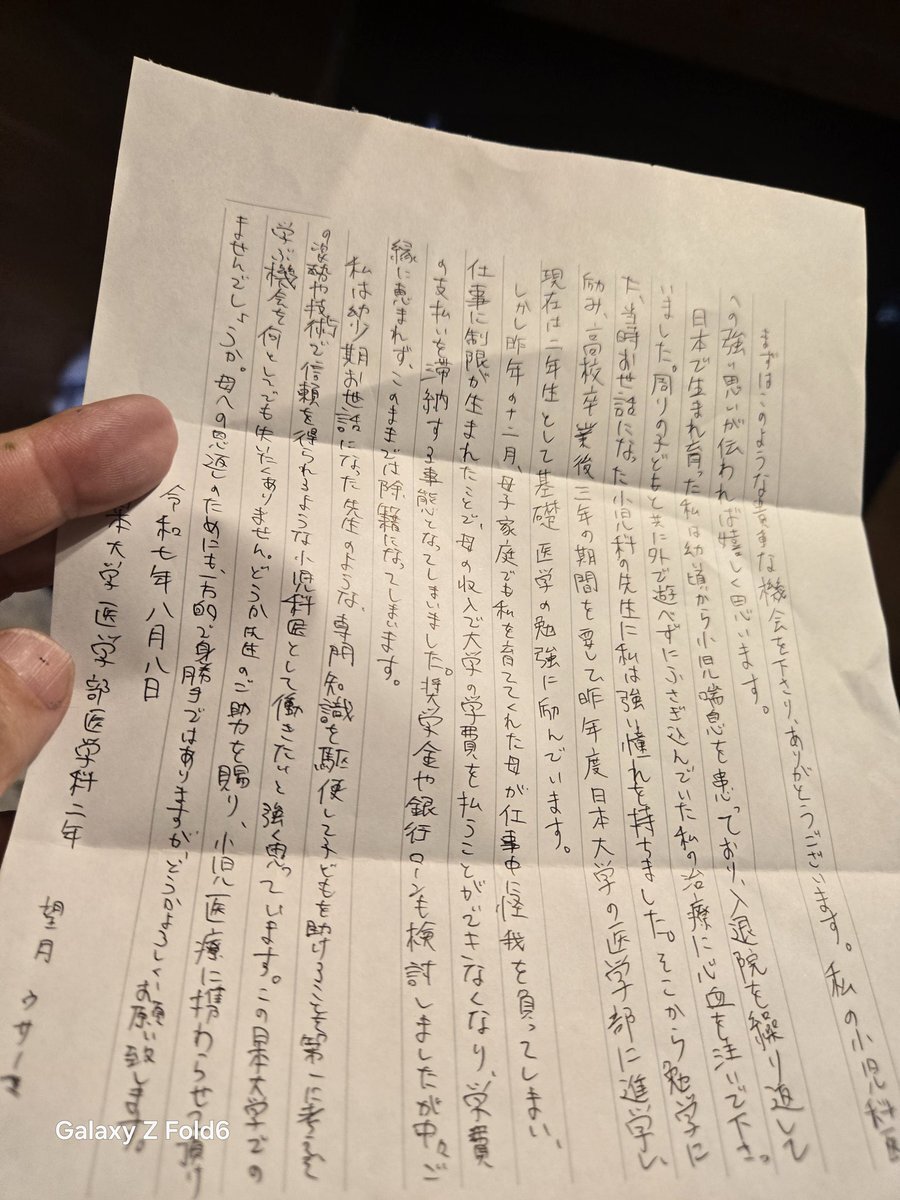 まずはこのような貴重な機会を下さり、ありがとうございます。私の小児科医
への強い思いが伝われば嬉しく思います。
日本で生まれ育った私は幼い頃から小児喘息を患っており、入退院を繰り返して
いました。周りの子どもと共に外で遊べずにふさぎ込んでいた私の治療に心血を注いで下さっ
た、当時お世話になった小児科の先生に私は強い憧れを持ちました。そこから勉学に
励み、高校卒業後三年の期間を要して昨年度日本大学の医学部に進学し、
現在は二年生として基礎医学の勉強に励んでいます。
しかし昨年の十二月、母子家庭でも私を育ててくれた母が仕事中に怪我を負ってしまい、
仕事に制限が生まれたことで、母の収入で大学の学費を払うことができなくなり、学費
の支払いを滞納する事態となってしまいました。奨学金や銀行ローンも検討しましたが中々ご
縁に恵まれず、このままでは除籍になってしまいます。
私は幼少期お世話になった先生のような、専門知識を駆使して子どもを助けることを第一に考え
の姿勢や技術で信頼を得られるような小児科医として働きたいと強く思っています。この日本大学での
学ぶ機会を何としてでも失いたくありません。どうか先生のご助力を賜り、小児医療に携わらせて頂け
ませんでしょうか。母への恩返しのためにも、一方的で身勝手ではありますが、どうかよろしくお願い致します。
令和七年八月八日
本大学医学部医学科二年
望月 ウサーマ
Galaxy Z Fold6